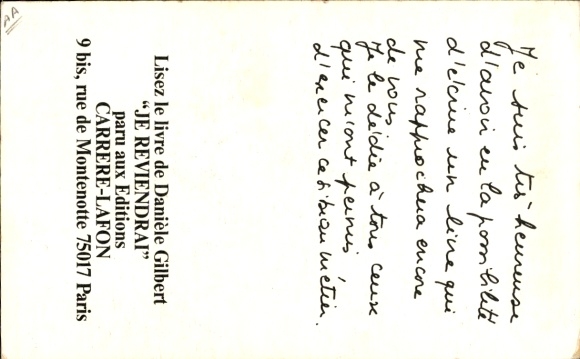 AA
Je suis très heureuse
d'avoir eu la possibilité
d'écrire un livre qui
me rapprochera encore
de vous
Je le dédie à tous ceux
qui m'ont permis
d'exercer ce si beau métier.
Lisez le livre de Danièle Gilbert
"JE REVIENDRAI"
paru aux Editions
CARRERE-LAFON
9 bis, rue de Montenotte 75017 Paris